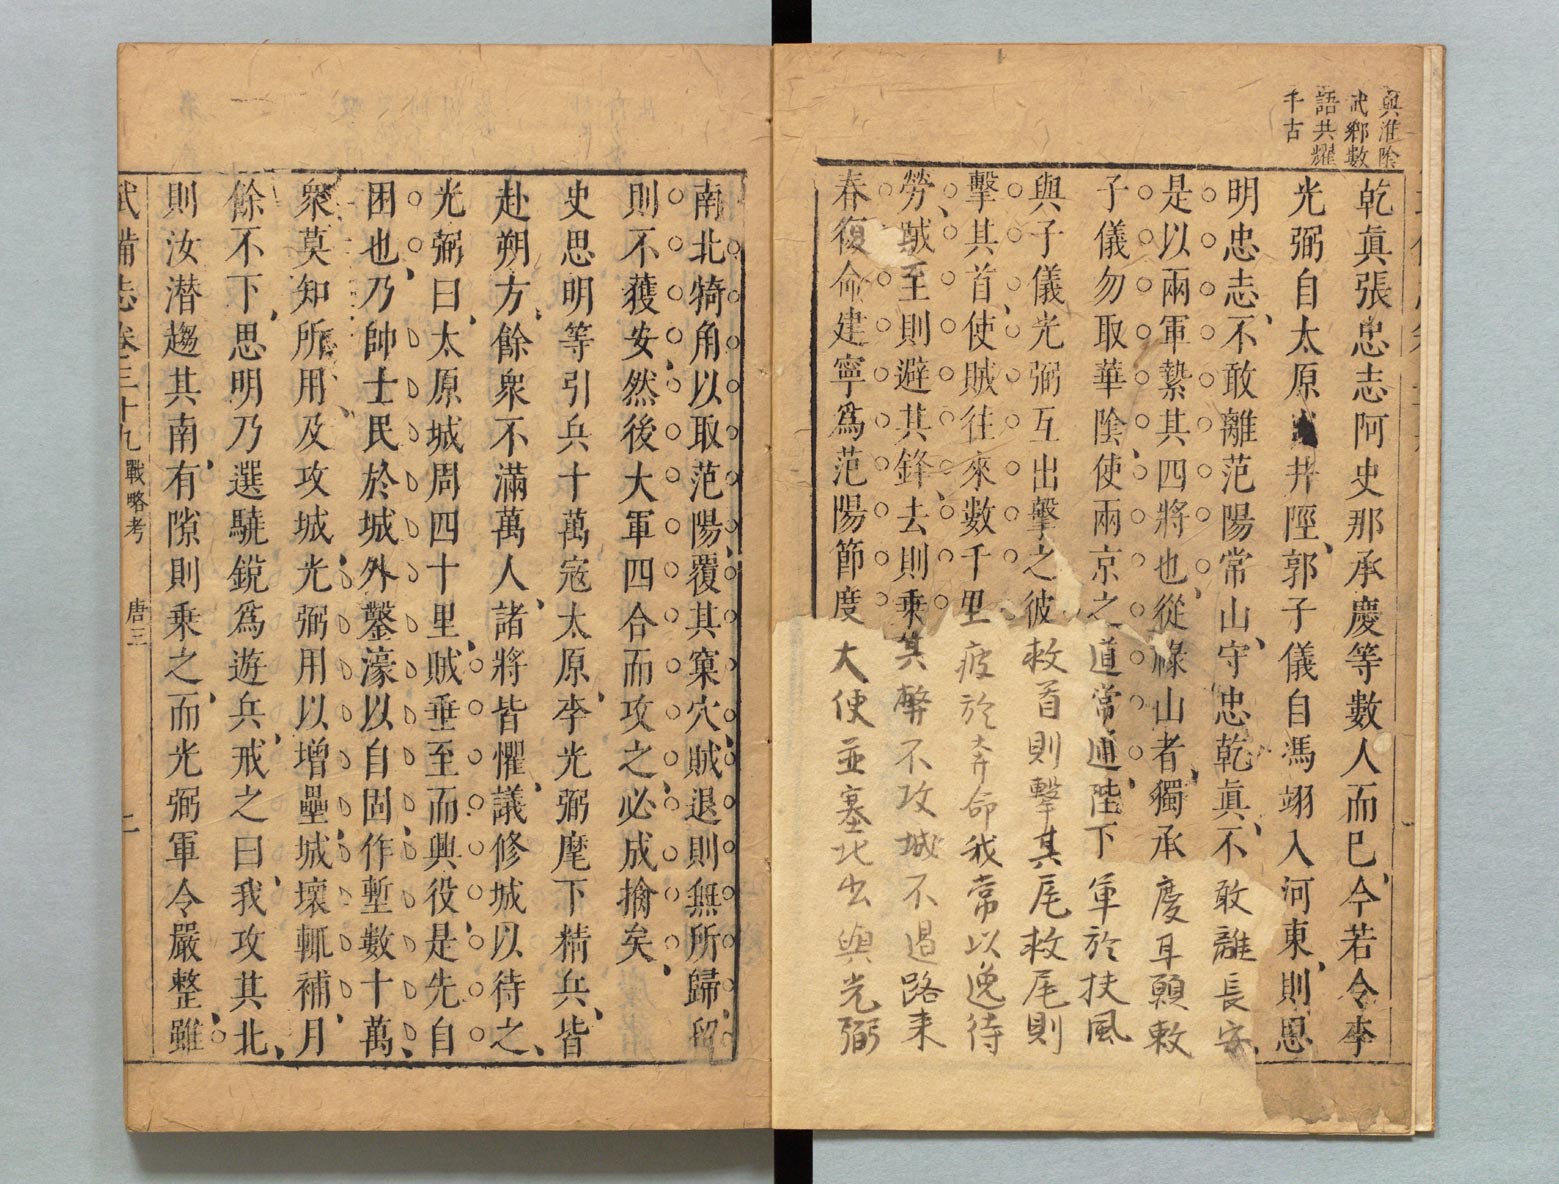 與淮陰
武鄉數
語共耀
千古
乾眞張忠志阿史那承慶等數人而巳今若令李
光弼自太原井陘郭子儀自馮翊入河東則思
明忠志不敢離范陽常山守忠乾眞不敢離長安
是以兩軍縶其四將也從祿山者獨承慶耳願敕
子儀勿取華陰使兩京之道常通陛下軍於扶風
與子儀光弼互出擊之彼救首則擊其尾救尾則
擊其首使賊往來數千里疲於奔命我常以逸待
勞賊至則避其鋒去則乗其弊不攻城不遏路来
春復命建寧爲范陽節度大使並塞北出與光弼
南北犄角以取范陽覆其窠穴賊退則無所歸留
則不獲安然後大軍四合而攻之必成擒矣
史思明等引兵十萬寇太原李光弼麾下精兵皆
赴朔方餘衆不滿萬人諸將皆懼議修城以待之
光弼曰太原城周四十里賊垂至而興役是先自
困也乃帥士民於城外鑿濠以自固作塹數十萬
衆莫知所用及攻城光弼用以增壘城壞輒補月
餘不下思明乃選驍銳爲遊兵戒之曰我攻其北
則汝潜趨其南有隙則乗之而光弼軍令嚴整雖
武備志卷三十九 戰略考 唐三 二